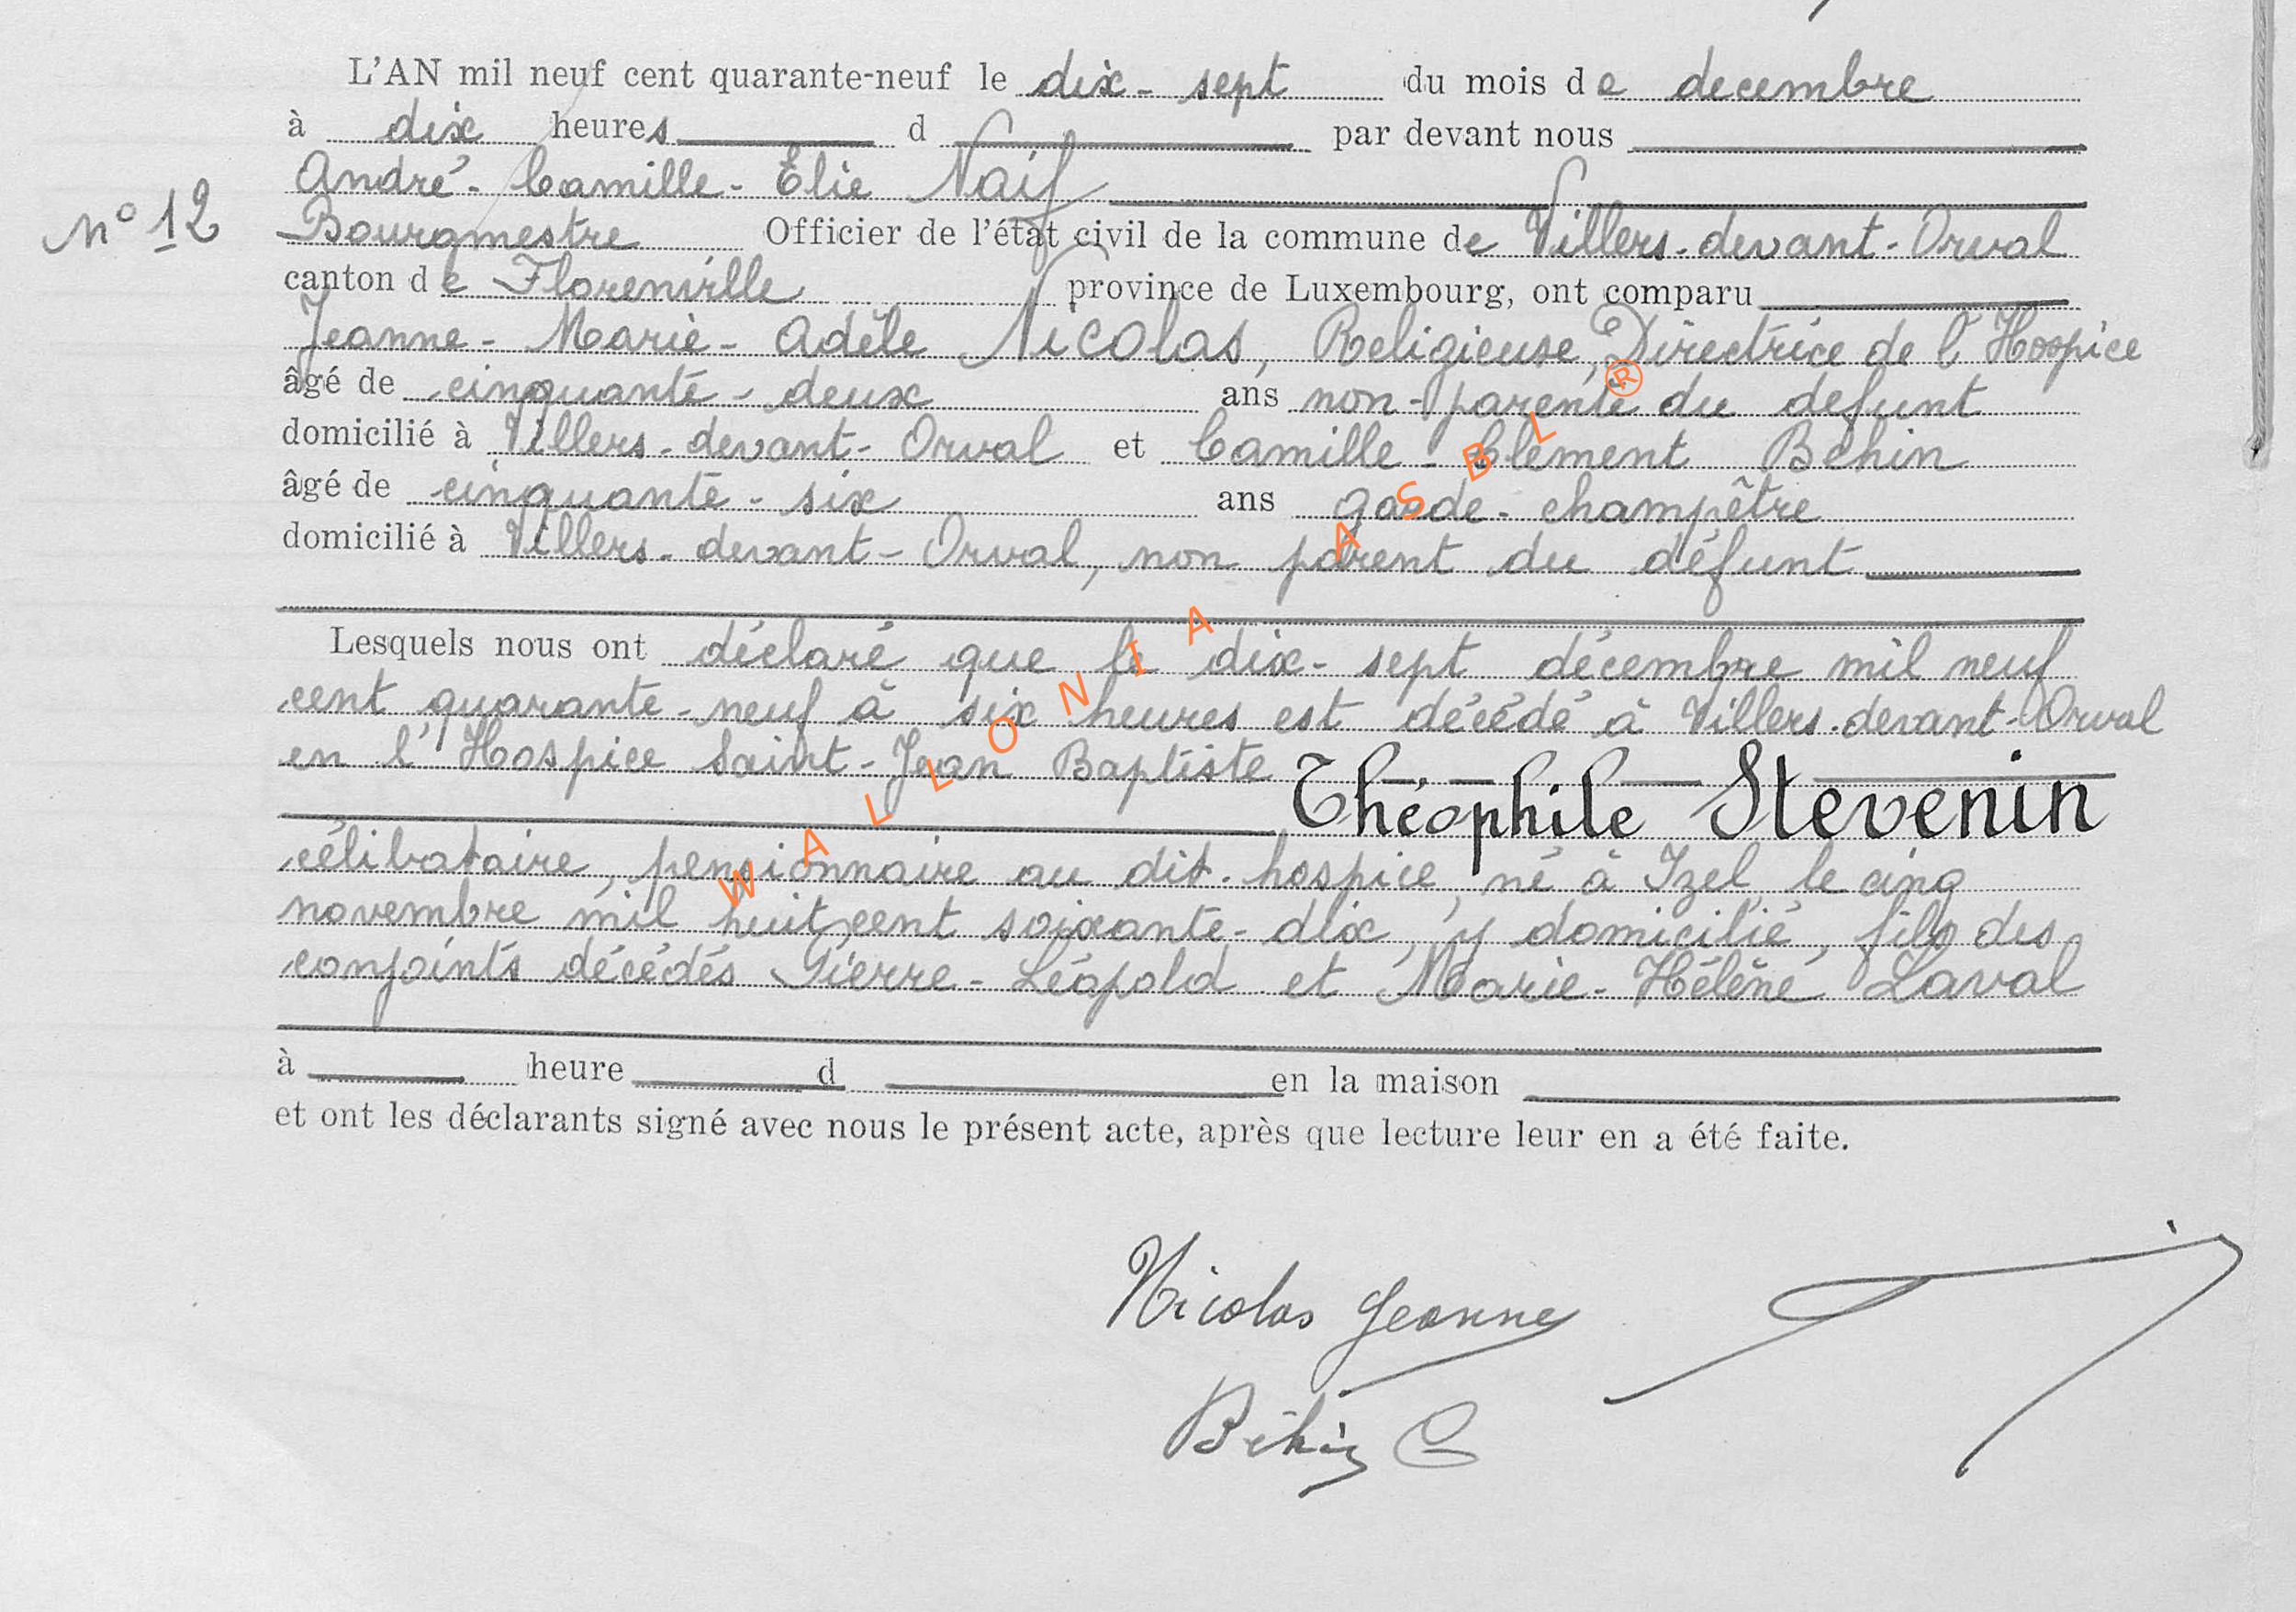 L'AN mil neuf cent quarante-neuf le dix-sept du mois de decembre
à dix heures d par devant nous
André-Camille-Elie Naif
n° 12 Bourgmestre Officier de l'état civil de la commune de Villers-devant-Orval
canton de Florenville province de Luxembourg, ont comparu
Jeanne-Marie-Adèle Nicolas, Religieuse, Directrice de l'Hospice
âgé de cinquante-deux ans non-parente du defunt
domicilié à Villers-devant-Orval et Camille-Clément Behin
âgé de cinquante-six ans garde-champêtre
domicilié à Villers-devant-Orval, non parent du défunt
Lesquels nous ont déclaré que le dix-sept décembre mil neuf
cent quarante-neuf à six heures est décédé à Villers-devant-Orval
en l'Hospice Saint-Jean Baptiste
Théophile Stevenin
célibataire, pensionnaire au dit-hospice, né à Izel, le cinq
novembre mil huit cent soixante-dix, y domicilié, fils des
conjoints décédés Pierre-Léopold et Marie-Hélène Laval
à heure d en la maison
et ont les déclarants signé avec nous le présent acte, après que lecture leur en a été faite.
Nicolas Jeanne
Béhin C
WALLONIA ASBL ®